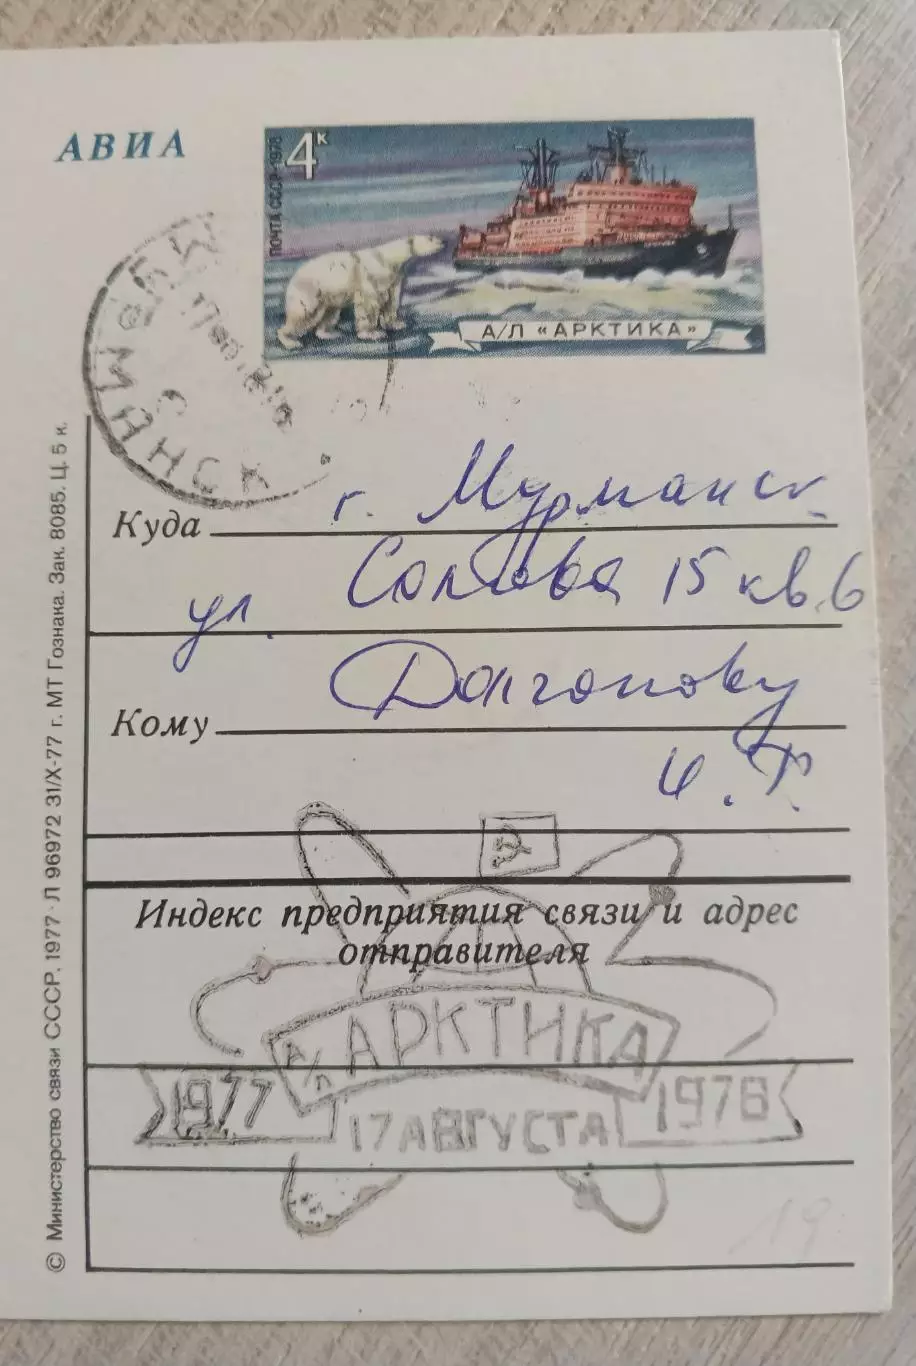 АВИА
4к
ПОЧТА СССР · 1978
А/Л «АРКТИКА»
МУРМАНСК
Куда г. Мурманск
ул. 15 кв. 6
Кому Долгопову
И. Т.
Индекс предприятия связи и адрес
отправителя
А/Л АРКТИКА
1977 17 АВГУСТА 1978
19
© Министерство связи СССР. 1977 · Л 96972 31/X-77 г. МТ Гознака. Зак. 8085. Ц. 5 к.